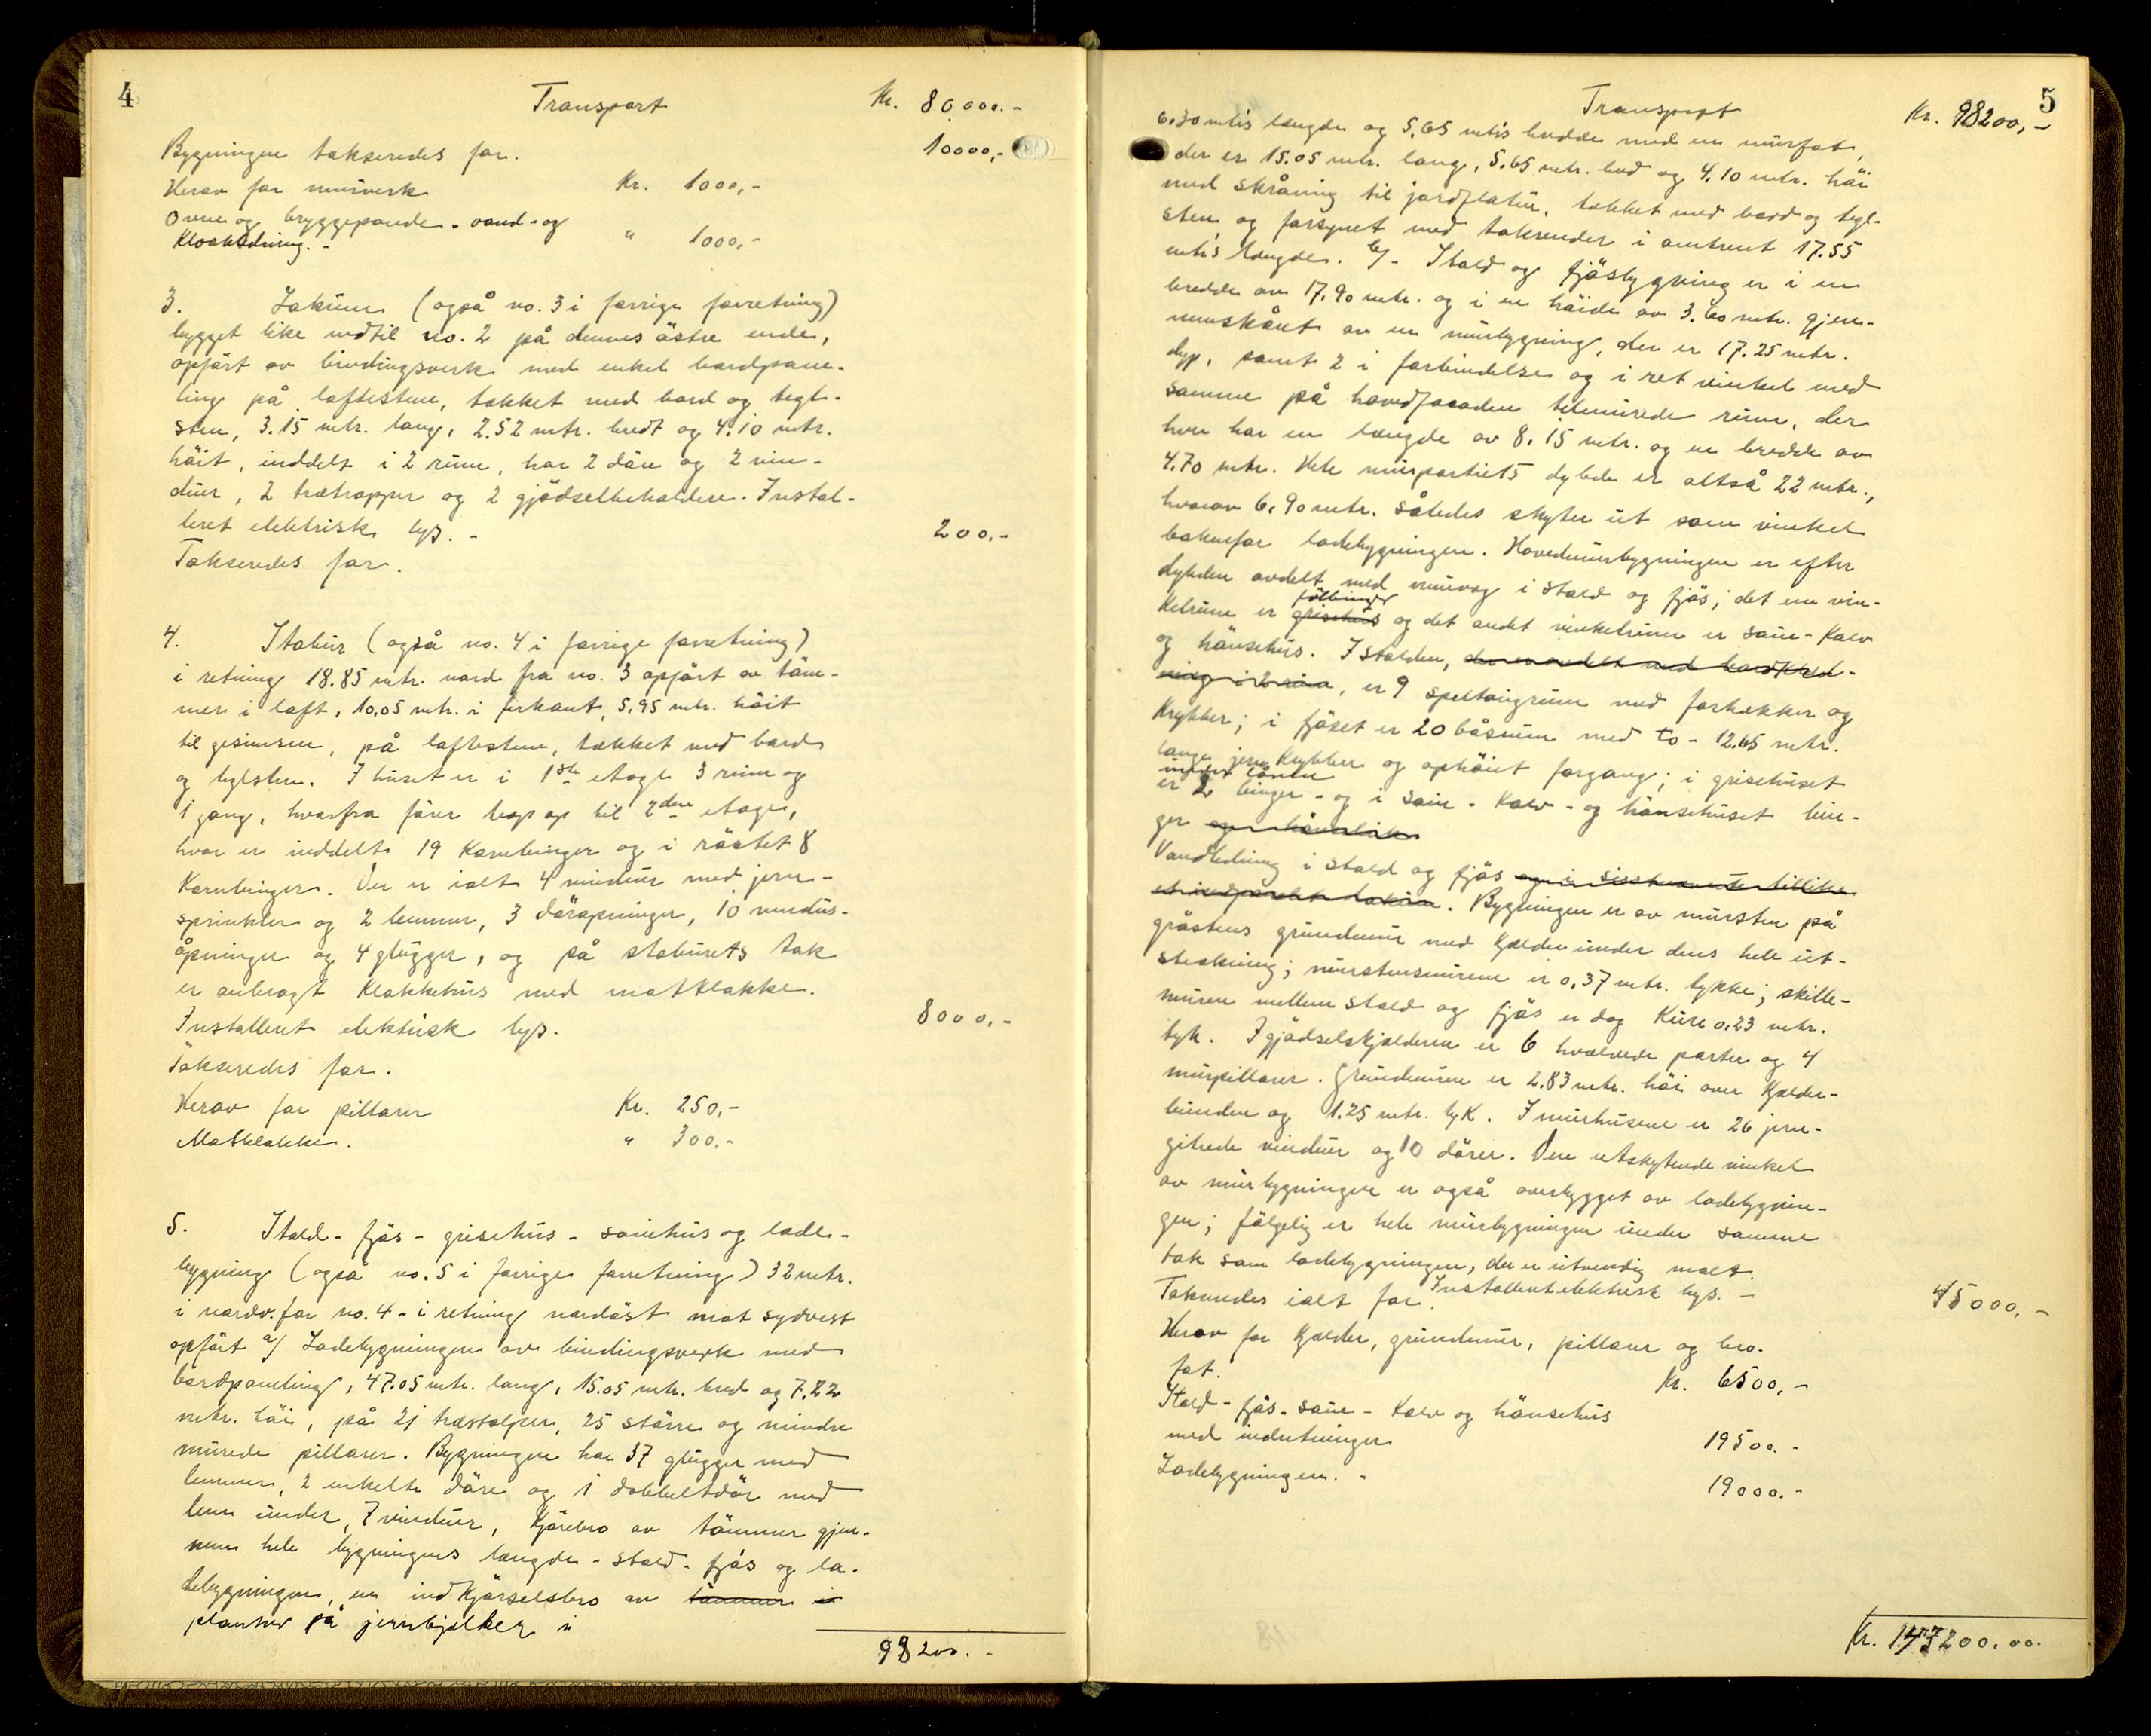 4
Transport Kr. 80000.-
Bygningen takseredes for. 10000,-
Herav for murverk Kr. 1000,-
Ovne og bryggepande - vand- og
Kloakledning.- " 1000,-
3. Lokum (også no. 3 i forrige forretning)
bygget like indtil no. 2 på dennes östre ende,
opfört av bindingsverk med enkel bordpane-
ling på löftestene, tækket med bord og tegl-
sten, 3.15 mtr. lang, 2.52 mtr. bredt og 4.10 mtr.
höit, inddelt i 2 rum, har 2 döre og 2 vin-
duer, 2 trætrapper og 2 gjödselbeholdere. Instal-
leret elektrisk lys.-
Takseredes for. 200.-
4. Stabur (også no. 4 i forrige forretning)
i retning 18.85 mtr. nord fra no. 3 opfört av töm-
mer i laft, 10.05 mtr. i firkant, 5.95 mtr. höit
til gesimsen, på löftestene, tækket med bord
og teglsten. I huset er i 1ste etage 3 rum og
1 gang, hvorfra förer trap op til 2den etage,
hvor er inddelt 19 Kornbinger og i röstet 8
Kornbinger. Der er ialt 4 vinduer med jern-
sprinkler og 2 lemmer, 3 döråpninger, 10 vindus-
åpninger og 4 glugger, og på staburets tak
er anbragt Klokkehus med matklokke.
Installeret elektrisk lys.
Takseredes for. 8000,-
Herav for pillarer Kr. 250,-
Matklokke. " 300.-
5. Stald- fjös- grisehus- sauehus og lade-
bygning (også no. 5 i forrige forretning) 32 mtr.
i nordv. for no. 4 - i retning nordöst mot sydvest
opfört a/ Ladebygningen av bindingsverk med
bordpaneling, 47.05 mtr. lang, 15.05 mtr. bred og 7.22
mtr. höi, på 21 træstolper, 25 större og mindre
murede pillarer. Bygningen har 37 glugger med
lemmer, 2 enkelte döre og 1 dobbeltdör med
lem under, 7 vinduer, Kjörebro av tömmer gjen-
nem hele bygningens længde - stald- fjös og la-
debygningen, en indkjörselsbro av tömmer i
planker på jernbjelker i
98200.-
5
Transport Kr. 98200,-
6.30 mtrs længde og 5.65 mtrs bredde med en murfot,
der er 15.05 mtr. lang, 5.65 mtr. bred og 4.10 mtr. höi
med skråning til jordflaten, tækket med bord og tegl-
sten og forsynet med takrender i omtrent 17.55
mtrs længde. b/- Stald og fjösbygning er i en
bredde av 17.90 mtr. og i en höide av 3.60 mtr. gjen-
nemskåret av en murbygning, der er 17.25 mtr.
dyp, samt 2 i forbindelse og i ret vinkel med
samme på hovedfacaden tilmurede rum, der
hver har en længde av 8.15 mtr. og en bredde av
4.70 mtr. Hele murpartiets dybde er altså 22 mtr.,
hvorav 6.90 mtr. således skyter ut som vinkel
bakenfor ladebygningen. Hovedmurbygningen er efter
dybden avdelt med murvæg i stald og fjös; det ene vin-
kelrum er grisehus fölbinger og det andet vinkelrum er saue- Kalv
og hönsehus. I stalden, der er avdelt med bordkled-
ning i 2 rum, er 9 spiltaugrum med forhækker og
Krybber; i fjöset er 20 båsrum med to- 12.65 mtr.
lange jern Krybber og ophöiet forgang; i grisehuset
under låven
er 2 binger - og i saue- Kalv- og hönsehuset bin-
ger
Vandledning i stald og fjös og i sistnævnte tillike
et indpanelt lokum. Bygningen er av mursten på
gråstens grundmur med Kjelder under dens hele ut-
strekning; murstensmurene er 0,37 mtr. tykke; skille-
muren mellem stald og fjös er dog Kun 0.23 mtr.
tyk. I gjödselskjelderen er 6 hvælvede porter og 4
murpillarer. Grundmuren er 2.83 mtr. höi over Kjelder-
bunden og 1.25 mtr. tyk. I murhusene er 26 jern-
gitrede vinduer og 10 dörer. Den utskytende vinkel
av murbygningen er også overbygget av ladebygnin-
gen; fölgelig er hele murbygningen under samme
tak som ladebygningen, der er utvendig malt.
Installeret elektrisk lys.-
Takseredes ialt for. 45000,-
Herav for Kjelder, grundmur, pillarer og bro-
fot. Kr. 6500,-
Stald- fjös- saue- Kalv og hönsehus
med indretninger 19500.-
Ladebygningen.- 19000.-
Kr. 143200.00.